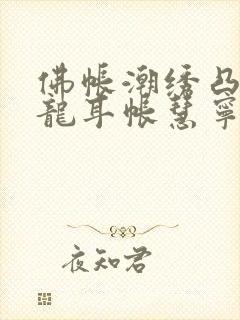 佛帐潮绣凸
龍耳帐慧寧
夜知君